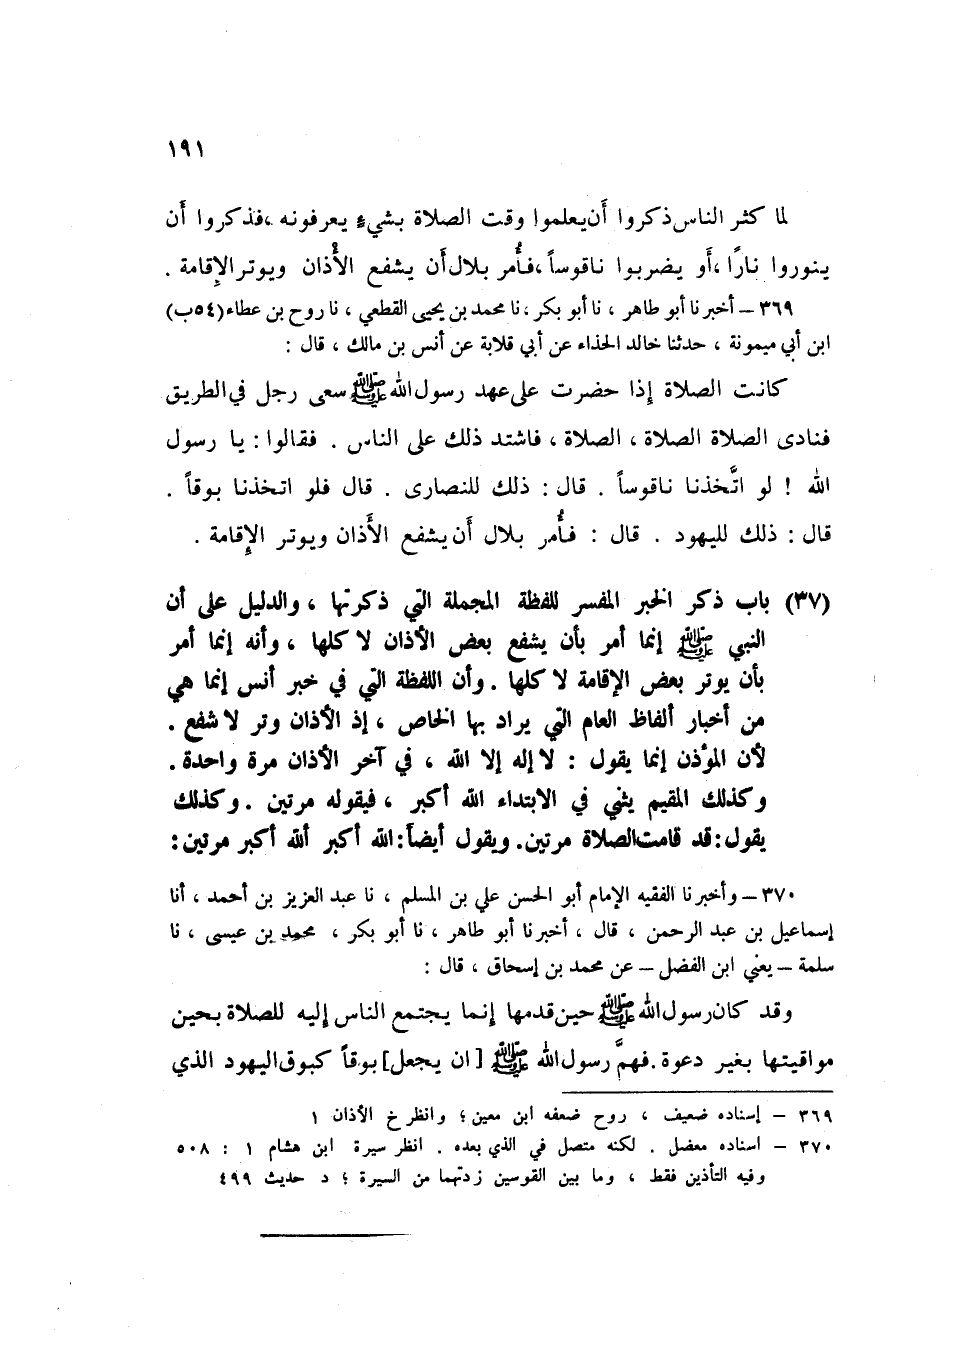 ١٩١
لما كثر الناس ذكروا أَن يعلموا وقت الصلاة بشيءٍ يعرفونه ، فذكروا أَن
ينوروا نارًا ، أَو يضربوا ناقوساً ، فأُمر بلال أَن يشفع الأَذان ويوتر الإِقامة .
٣٦٩ – أخبرنا أبو طاهر ، نا أبو بكر ، نا محمد بن يحيى القطعي ، نا روح بن عطاء (٥٤ب)
ابن أبي ميمونة ، حدثنا خالد الحذاء عن أبي قلابة عن أنس بن مالك ، قال :
كانت الصلاة إِذا حضرت على عهد رسول الله ﷺ سعى رجل في الطريق
فنادى الصلاة الصلاة ، الصلاة ، فاشتد ذلك على الناس . فقالوا : يا رسول
الله ! لو اتَّخذنا ناقوساً . قال : ذلك للنصارى . قال فلو اتخذنا بوقاً .
قال : ذلك لليهود . قال : فأُمر بلال أَن يشفع الأَذان ويوتر الإِقامة .
(٣٧) باب ذكر الخبر المفسر للفظة المجملة التي ذكرتها ، والدليل على أن
النبي ﷺ إنما أمر بأن يشفع بعض الأذان لا كلها ، وأنه إنما أمر
بأن يوتر بعض الإقامة لا كلها . وأن اللفظة التي في خبر أنس إنما هي
من أخبار ألفاظ العام التي يراد بها الخاص ، إذ الأذان وتر لا شفع .
لأن المؤذن إنما يقول : لا إله إلا الله ، في آخر الأذان مرة واحدة .
وكذلك المقيم يثني في الابتداء الله أكبر ، فيقوله مرتين . وكذلك
يقول : قد قامت الصلاة مرتين . ويقول أيضاً : الله أكبر ألله أكبر مرتين :
٣٧٠ – وأخبرنا الفقيه الإمام أبو الحسن علي بن المسلم ، نا عبد العزيز بن أحمد ، أنا
إسماعيل بن عبد الرحمن ، قال ، أخبرنا أبو طاهر ، نا أبو بكر ، محمد بن عيسى ، نا
سلمة – يعني ابن الفضل – عن محمد بن إسحاق ، قال :
وقد كان رسول الله ﷺ حين قدمها إنما يجتمع الناس إليه للصلاة بحين
مواقيتها بغير دعوة . فهمَّ رسول الله ﷺ [ ان يجعل ] بوقاً كبوق اليهود الذي
٣٦٩ – إسناده ضعيف ، روح ضعفه ابن معين ؛ وانظر خ الأذان ١
٣٧٠ – اسناده معضل . لكنه متصل في الذي بعده . انظر سيرة ابن هشام ١ : ٥٠٨
وفيه التأذين فقط ، وما بين القوسين زدتهما من السيرة ؛ د حديث ٤٩٩